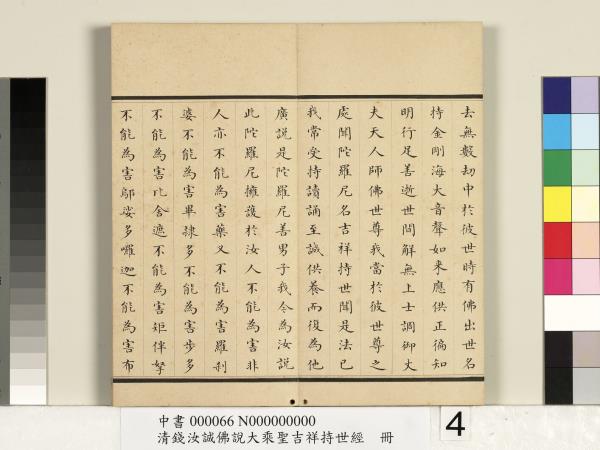 去無數劫中於彼世時有佛出世名
持金剛海大音聲如来應供正徧知
明行足善逝世間解無上士調御丈
夫天人師佛世尊我當於彼世尊之
處聞陀羅尼名吉祥持世聞是法已
我常受持讀誦至誠供養而復為他
廣說是陀羅尼善男子我今為汝說
此陀羅尼擁護於汝人不能為害非
人亦不能為害藥叉不能為害羅剎
婆不能為害畢隷多不能為害步多
不能為害比舍遮不能為害矩伴拏
不能為害鄔娑多囉迦不能為害布
中書 000066 N000000000
清錢汝誠佛說大乘聖吉祥持世經 冊
4